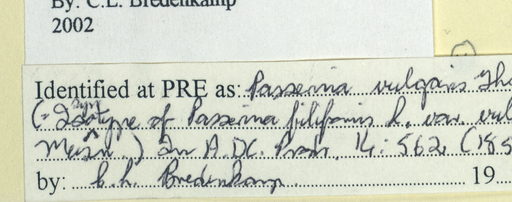 By: C.L. Bredenkamp
2002
Identified at PRE as: Passerina vulgaris Tho
(= Isosyntype of Passerina filiformis L. var. vul
Meisn.) In A DC. Prodr. 14: 562 (185
by: C. L. Bredenkamp 19